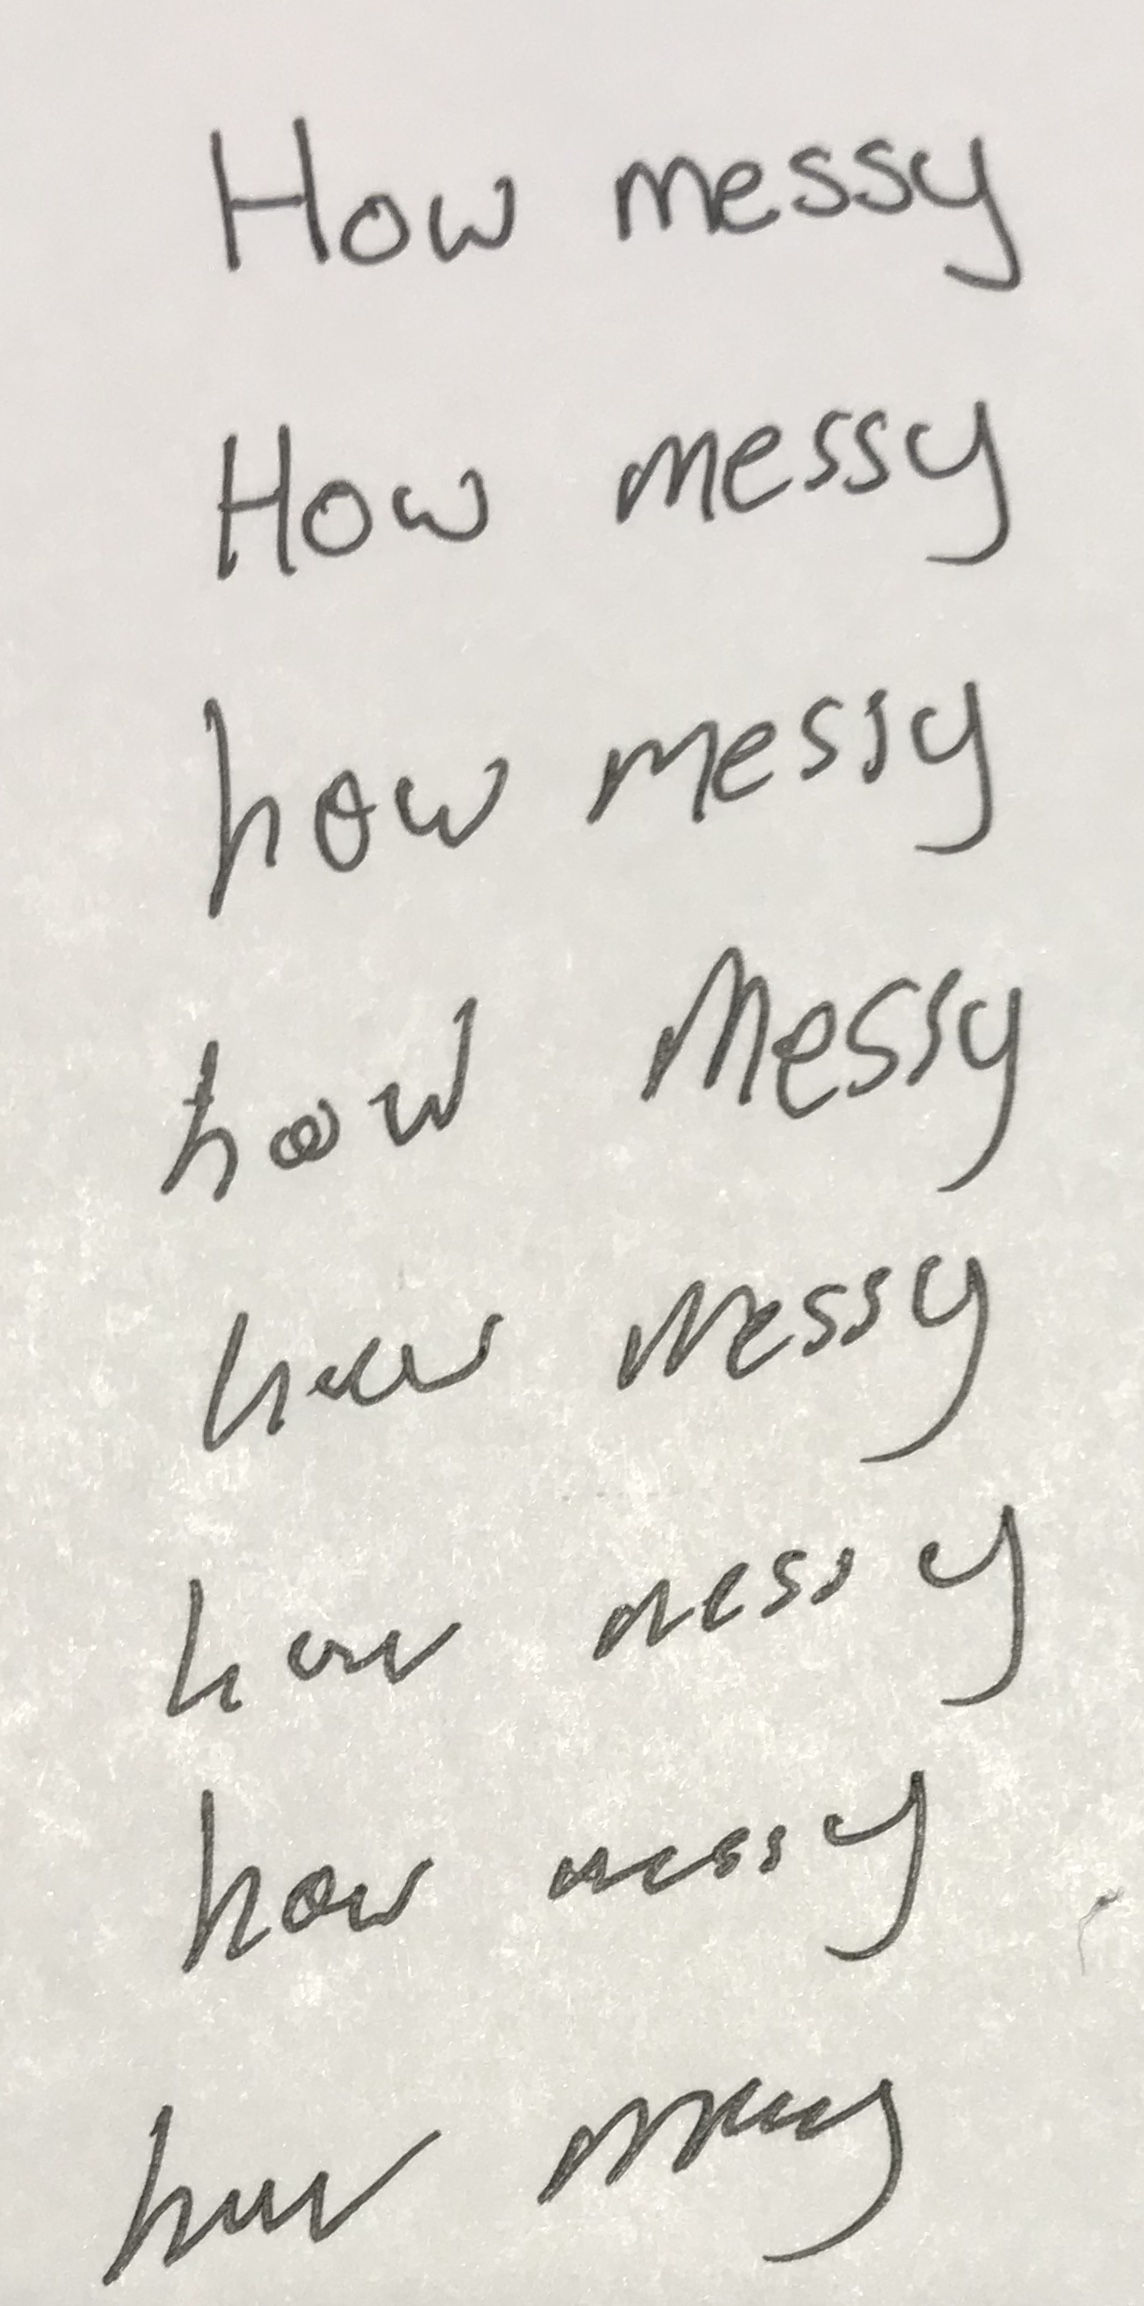 How messy
How messy
how messy
how messy
how messy
how messy
how messy
how messy